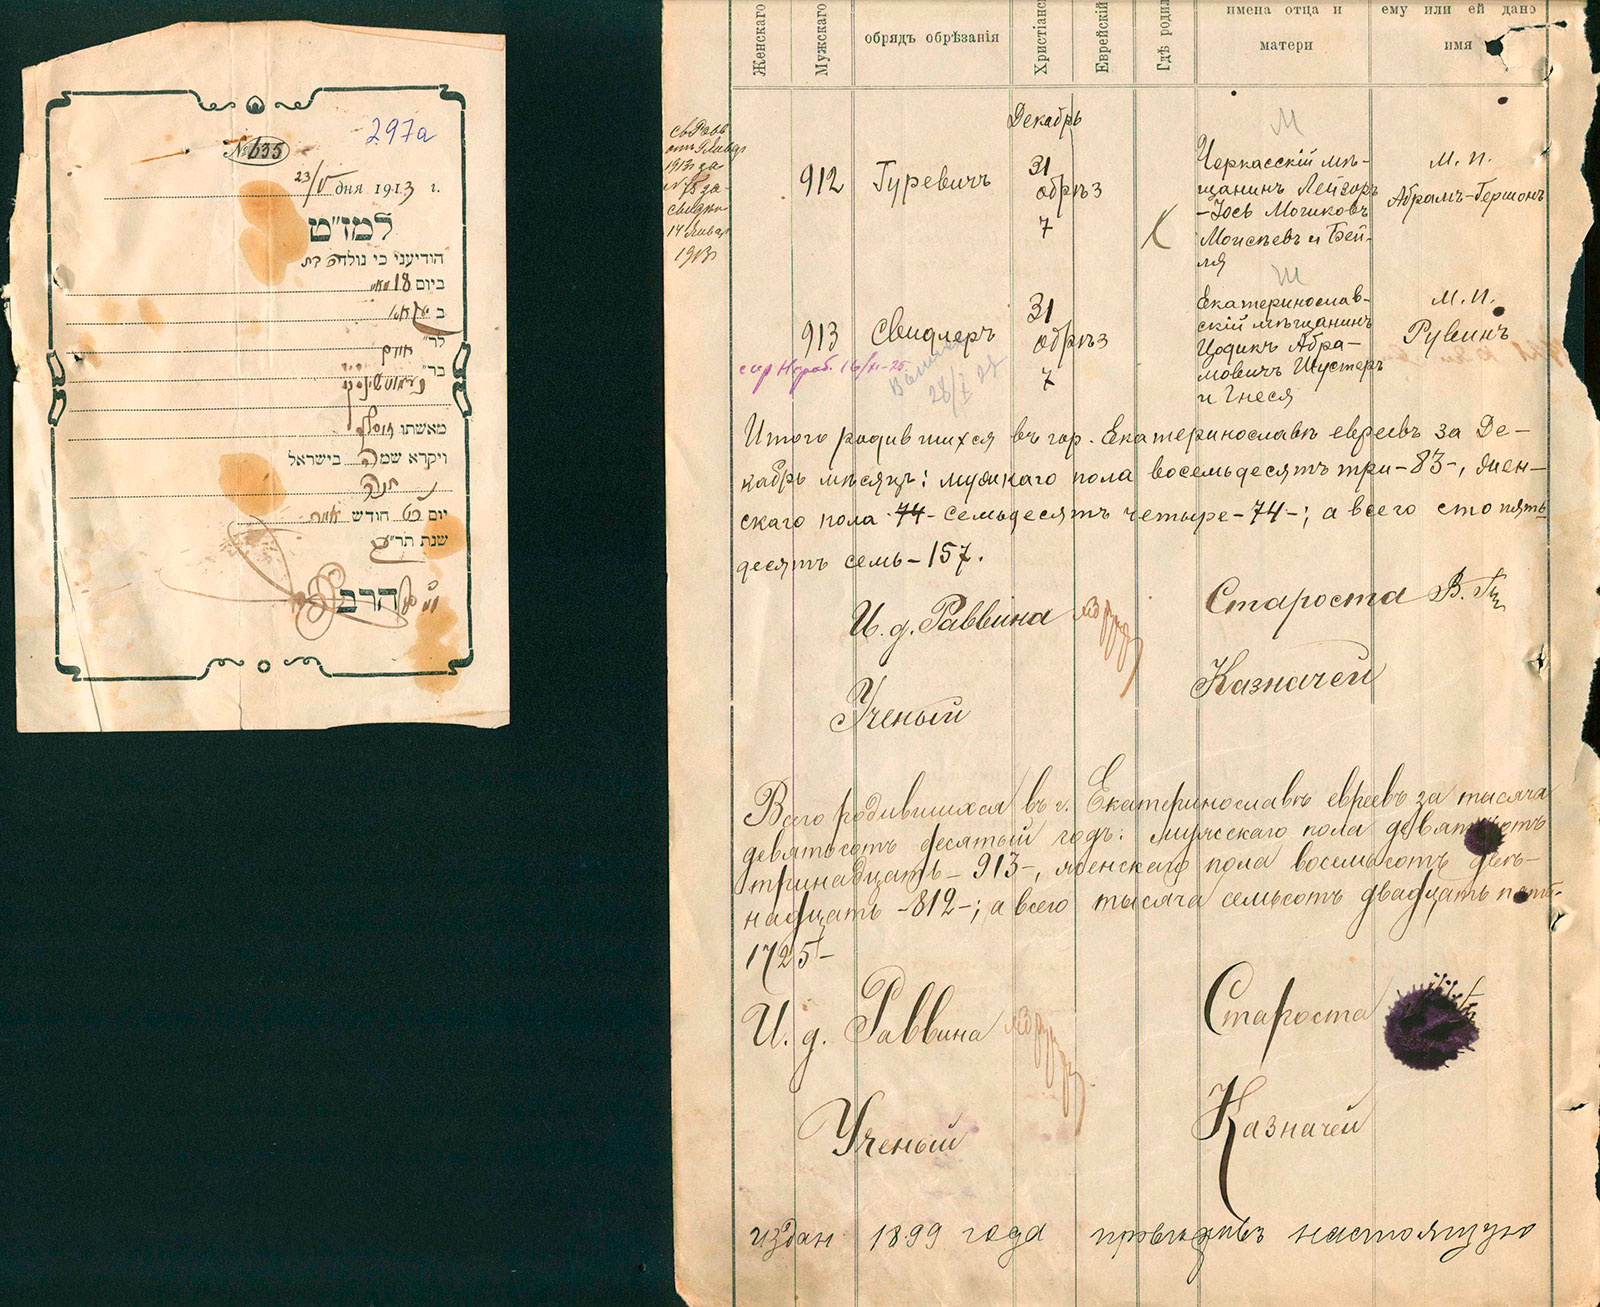 297а
№ 635
23/V дня 1913 г.
למז"ט
הודיעני כי נולדה בת
ביום 18
ב
לר"
בר"
מאשתו
ויקרא שמה בישראל
יום חודש
שנת תר"ע
הרב
Женскаго
Мужскаго
обрядъ обрѣзанія
Христіанс
Еврейскій
Гдѣ родил
имена отца и
матери
ему или ей дано
имя
Декабрь
М
912
Гуревичъ
31
обрѣз
7
Черкасскій мѣ-
щанинъ Лейзоръ
-Іось Мошковъ
Моисѣевъ и Бей-
ля
М. п.
Абрамъ-Гершонъ
1913 за
14 Январ
1913
Ш
913
Свидлеръ
31
обрѣз
7
Екатеринослав-
скій мѣщанинъ
Цодикъ Абра-
мовичъ Шустеръ
и Гнеся
М. п.
Рувинъ
16/XI-25
Итого родившихся въ гор. Екатеринославѣ евреевъ за Де-
кабрь мѣсяцъ: мужскаго пола восемьдесятъ три-83-, жен-
скаго пола 74- семьдесятъ четыре-74-; а всего сто пять-
десятъ семь-157.
И. д. Раввина
Староста
Ученый
Казначей
Всего родившихся въ г. Екатеринославѣ евреевъ за тысяча
девятьсотъ десятый годъ: мужскаго пола девятьсотъ
тринадцать-913-, женскаго пола восемьсотъ двѣ-
надцать-812-; а всего тысяча семьсотъ двадцать пять-
1725-
И. д. Раввина
Староста
Ученый
Казначей
издан 1899 года настоящую